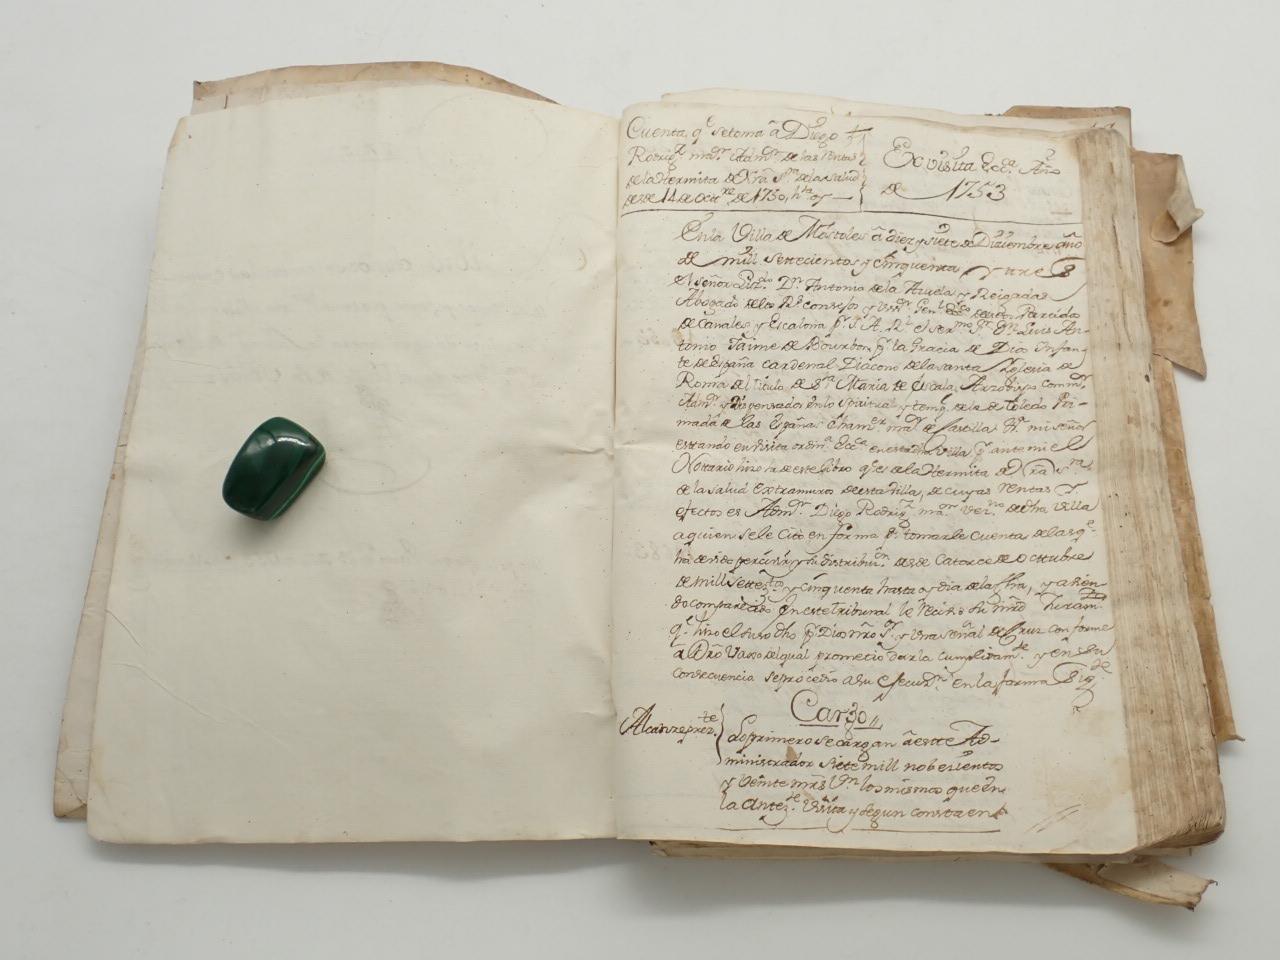 Cuenta q.e se toma â Diego
Rodrig.z ma.or Adm.or de las rentas
de la Hermita de Nra S.ra de la Salud
desde 14 de Oct.re de 1750, h.ta oy
Ex visita Ecc.ca Año
de 1753
En la Villa de Mostoles â diez y siete de Diziembre año
de mill settecientos y cinquenta y tres
el señor Liz.do D.n Antonio de la y Reigadas
Abogado de los R.s consejos y Vis.or Gen.l de su Partido
de Canales y Escalona p.r S. A. R.l el Ser.mo S.or D.n Luis An-
tonio Jaime de Bourbon p.r la Gracia de Dios Infan-
te de españa Cardenal Diacono de la santa Iglesia de
Roma del titulo de S.ta Maria de escala, Arzobispo
Adm.or y Dispensador en lo Spiritual y temp.l de la de Toledo Pri-
mada de las Españas Chanz.er ma.or de Castilla mi señor
estando en visita ordin.a Ecc.ca en esta dha Villa p.r ante mi el
Nottario hizo de este libro q.e es de la Hermita de Nra S.ra
de la Salud extramuros de esta Villa, de cuyas rentas y
efectos es Adm.or Diego Rodrig.z ma.or vez.no de dha Villa
a quien se le cito en forma p.a tomarle cuenta de las q.e
ha devido percivir y su distribuz.on desde Catorce de octtubre
de mill settez.tos y cinquenta hasta oy dia de la fha, y avien-
do comparecido en este tribunal le recivio su mrd Juram.to
q.e hizo el suso dho p.r Dios nro S.r y una señal de Cruz conforme
â dro vajo del qual prometio darla cumplidam.te y en su
consecuencia se procedio a su execuz.on en la forma sig.te
Cargo
Alcanze prez.te
Lo primero se cargan â este Ad-
ministrador siete mill nobecientos
y veinte mrs V.n los mismos que en
la antez.te Visita y segun consta en